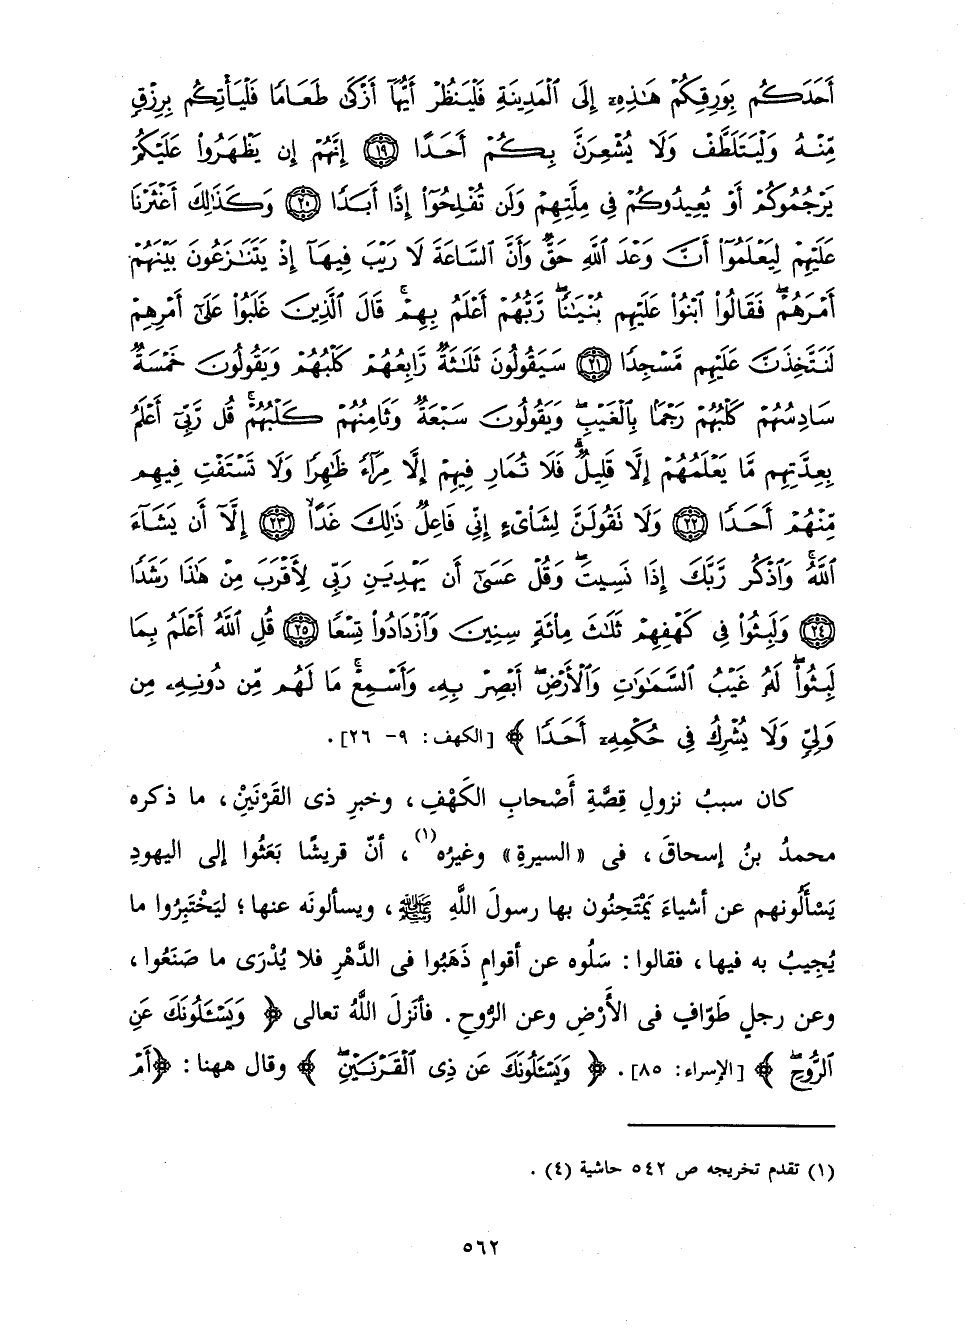 أَحَدَكُم بِوَرِقِكُمْ هَٰذِهِۦٓ إِلَى ٱلْمَدِينَةِ فَلْيَنظُرْ أَيُّهَآ أَزْكَىٰ طَعَامًا فَلْيَأْتِكُم بِرِزْقٍ
مِّنْهُ وَلْيَتَلَطَّفْ وَلَا يُشْعِرَنَّ بِكُمْ أَحَدًا ﴿١٩﴾ إِنَّهُمْ إِن يَظْهَرُوا۟ عَلَيْكُمْ
يَرْجُمُوكُمْ أَوْ يُعِيدُوكُمْ فِى مِلَّتِهِمْ وَلَن تُفْلِحُوٓا۟ إِذًا أَبَدًا ﴿٢٠﴾ وَكَذَٰلِكَ أَعْثَرْنَا
عَلَيْهِمْ لِيَعْلَمُوٓا۟ أَنَّ وَعْدَ ٱللَّهِ حَقٌّ وَأَنَّ ٱلسَّاعَةَ لَا رَيْبَ فِيهَآ إِذْ يَتَنَٰزَعُونَ بَيْنَهُمْ
أَمْرَهُمْ ۖ فَقَالُوا۟ ٱبْنُوا۟ عَلَيْهِم بُنْيَٰنًا ۖ رَّبُّهُمْ أَعْلَمُ بِهِمْ ۚ قَالَ ٱلَّذِينَ غَلَبُوا۟ عَلَىٰٓ أَمْرِهِمْ
لَنَتَّخِذَنَّ عَلَيْهِم مَّسْجِدًا ﴿٢١﴾ سَيَقُولُونَ ثَلَٰثَةٌ رَّابِعُهُمْ كَلْبُهُمْ وَيَقُولُونَ خَمْسَةٌ
سَادِسُهُمْ كَلْبُهُمْ رَجْمًۢا بِٱلْغَيْبِ ۖ وَيَقُولُونَ سَبْعَةٌ وَثَامِنُهُمْ كَلْبُهُمْ ۚ قُل رَّبِّىٓ أَعْلَمُ
بِعِدَّتِهِم مَّا يَعْلَمُهُمْ إِلَّا قَلِيلٌ ۗ فَلَا تُمَارِ فِيهِمْ إِلَّا مِرَآءً ظَٰهِرًا وَلَا تَسْتَفْتِ فِيهِم
مِّنْهُمْ أَحَدًا ﴿٢٢﴾ وَلَا تَقُولَنَّ لِشَا۟ىْءٍ إِنِّى فَاعِلٌ ذَٰلِكَ غَدًا ﴿٢٣﴾ إِلَّآ أَن يَشَآءَ
ٱللَّهُ ۚ وَٱذْكُر رَّبَّكَ إِذَا نَسِيتَ ۖ وَقُلْ عَسَىٰٓ أَن يَهْدِيَنِ رَبِّى لِأَقْرَبَ مِنْ هَٰذَا رَشَدًا
﴿٢٤﴾ وَلَبِثُوا۟ فِى كَهْفِهِمْ ثَلَٰثَ مِا۟ئَةٍ سِنِينَ وَٱزْدَادُوا۟ تِسْعًا ﴿٢٥﴾ قُلِ ٱللَّهُ أَعْلَمُ بِمَا
لَبِثُوا۟ ۖ لَهُۥ غَيْبُ ٱلسَّمَٰوَٰتِ وَٱلْأَرْضِ ۖ أَبْصِرْ بِهِۦ وَأَسْمِعْ ۚ مَا لَهُم مِّن دُونِهِۦ مِن
وَلِىٍّ وَلَا يُشْرِكُ فِى حُكْمِهِۦٓ أَحَدًا ﴾ [الكهف: ٩- ٢٦].
كان سببُ نزولِ قِصَّةِ أَصْحابِ الكَهْفِ، وخبرِ ذى القَرْنَيْنِ، ما ذكره
محمدُ بنُ إسحاقَ، فى «السيرةِ» وغيرُه(١)، أنّ قريشًا بَعَثُوا إلى اليهودِ
يَسْأَلُونهم عن أشياءَ يَمْتَحِنُون بها رسولَ اللَّهِ ﷺ، ويسألونَه عنها؛ ليَخْتَبِرُوا ما
يُجِيبُ به فيها، فقالوا: سَلُوه عن أقوامٍ ذَهَبُوا فى الدَّهْرِ فلا يُدْرَى ما صَنَعُوا،
وعن رجلٍ طَوّافٍ فى الأَرْضِ وعن الرُّوحِ. فأنزلَ اللَّهُ تعالى ﴿ وَيَسْـَٔلُونَكَ عَنِ
ٱلرُّوحِ ۖ ﴾ [الإسراء: ٨٥]. ﴿ وَيَسْـَٔلُونَكَ عَن ذِى ٱلْقَرْنَيْنِ ۖ ﴾ وقال ههنا: ﴿ أَمْ
(١) تقدم تخريجه ص ٥٤٢ حاشية (٤).
٥٦٢